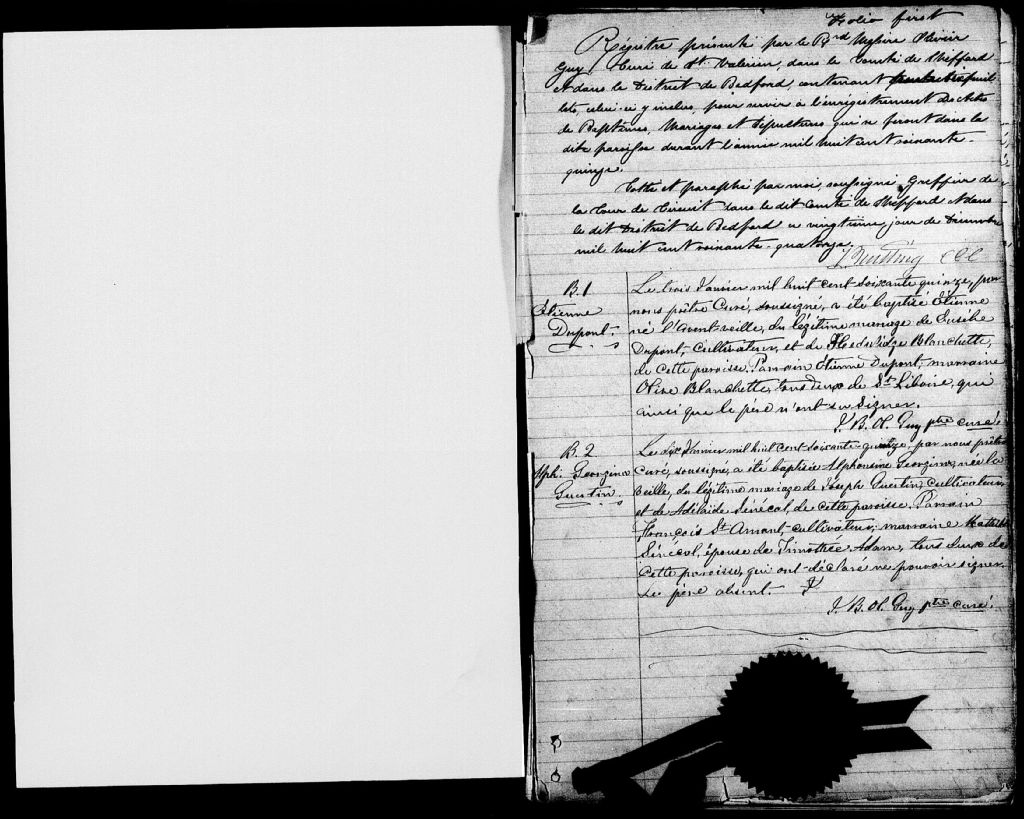 Folio first
Régistre présenté par le Rrd Messire Olivier
Guy, Curé de St. Valérien, dans le Comté de Shefford
et dans le District de Bedford, contenant feuil
lets, celui-ci y inclus, pour servir à l'enrégistrement des Actes
de Baptêmes, Mariages et Sépultures qui se feront dans la
dite paroisse durant l'année mil huit cent soixante-
quinze.
Cotté et paraphé par moi, soussigné, Greffier de
la Cour de Circuit dans le dit Comté de Shefford et dans
le dit District de Bedford ce vingtième jour de Décembre
mil huit cent soixante-quatorze.
CCC
B. 1
Étienne
Dupont.
Le trois Janvier mil huit cent soixante quinze, par
nous prêtre Curé, soussigné, a été baptisé Étienne
né l'avant-veille, du légitime mariage de Eusèbe
Dupont, Cultivateur, et de Hedwidge Blanchette,
de cette paroisse. Parrain Étienne Dupont, marraine
Olive Blanchette, tous deux de St. Liboire, qui
ainsi que le père n'ont su signer.
J. B. O. Guy ptre curé.
B. 2
Alph. Georgina
Guertin.
Le six Janvier mil huit cent soixante-quinze, par nous prêtre
Curé, soussigné, a été baptisée Alphonsine Georgina, née la
veille, du légitime mariage de Joseph Guertin, cultivateur
et de Adélaïde Sénécal, de cette paroisse. Parrain
François St Amant, cultivateur; marraine Mathilde
Sénécal, épouse de Timothée Adam, tous deux de
cette paroisse, qui ont déclaré ne pouvoir signer.
Le père absent.
J. B. O. Guy ptre curé.